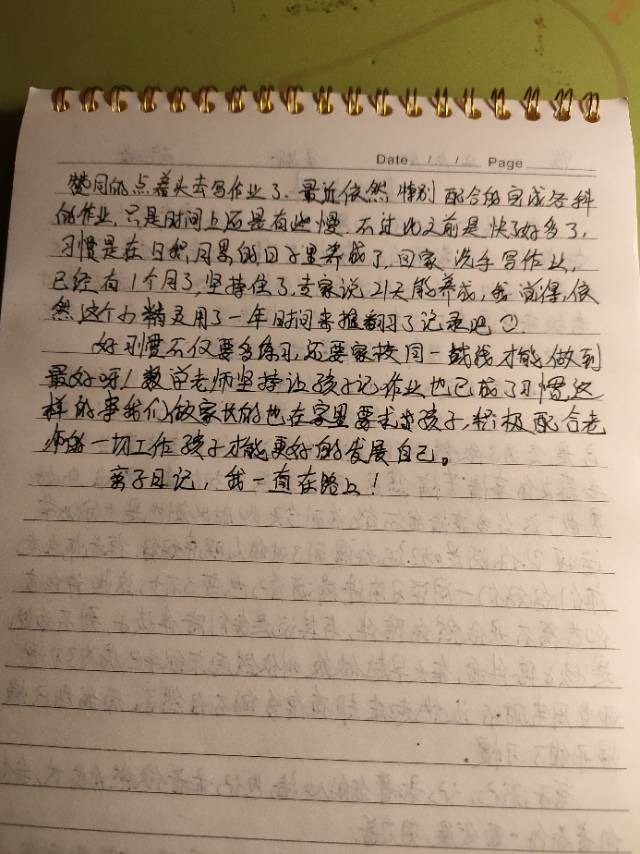 Date / / Page
赞同的点着头去写作业了。最近依然特别配合的完成各科
的作业,只是时间上还是有些慢,不过比之前是快了好多了,
习惯是在日积月累的日子里养成了,回家洗手写作业,
已经有1个月了,坚持住了,专家说21天能养成,我觉得,依
然这个小精灵用了一年时间来推翻了记录吧☺.
好习惯不仅要多练习,还要家校同一战线才能做到
最好呀!数学老师坚持让孩子记作业也已成了习惯,这
样的事我们做家长的也在家里要求孩子,积极配合老
师的一切工作孩子才能更好的发展自己。
亲子日记,我一直在路上!